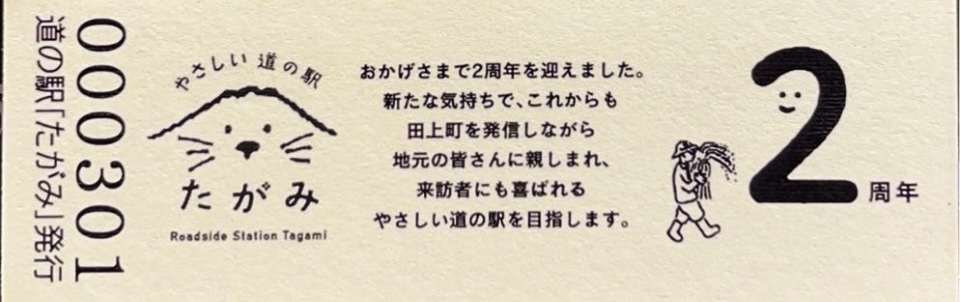 000301
道の駅「たがみ」発行
やさしい 道の駅
たがみ
Roadside Station Tagami
おかげさまで2周年を迎えました。
新たな気持ちで、これからも
田上町を発信しながら
地元の皆さんに親しまれ、
来訪者にも喜ばれる
やさしい道の駅を目指します。
2周年